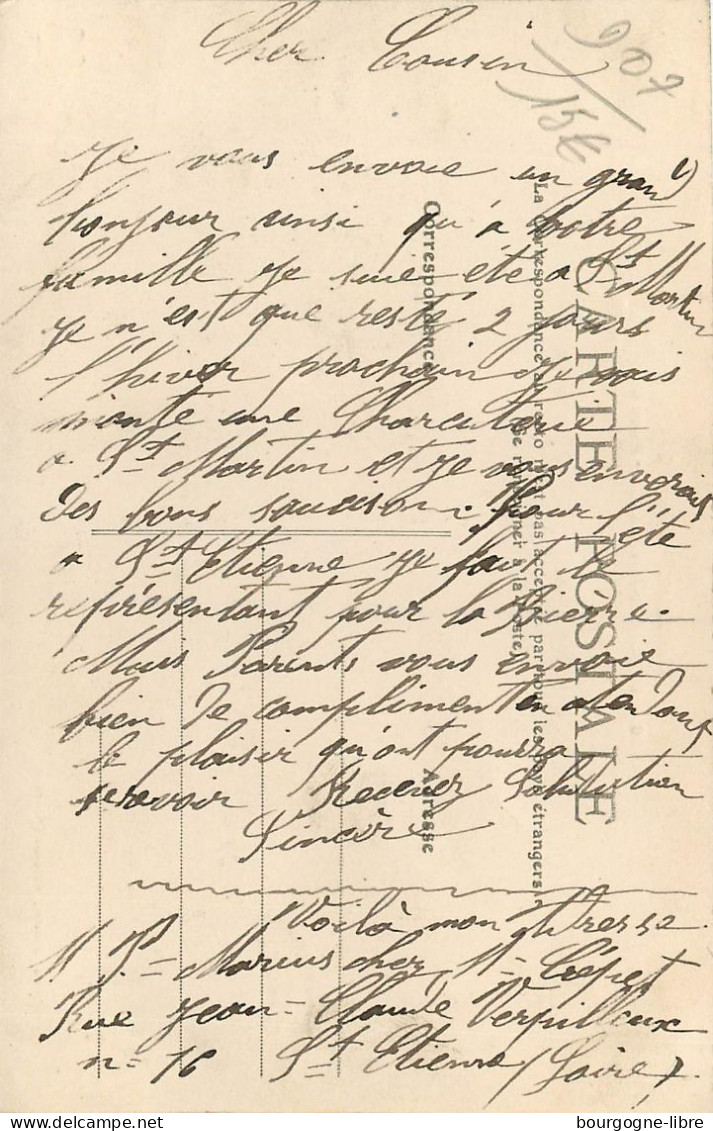 907
15€
Cher Cousin
Je vous envoie un grand
bonjour ainsi qu'a votre
famille Je suie été a St Martin
Je n'est que resté 2 jours
l'hiver prochain Je vais
monté une Charcuterie
a St Martin et Je vous enverais
des bons saucison. Pour l'été
a St Etienne Je fait le
représentant pour la Bierre.
Mais Parents vous envoie
bien de compliment en atendant
le plaisir qu'ont pourra
se revoir Recevez Salutation
Sincère
Voilà mon adresse
Marius chez M = Crépet
Rue Jean = Claude Verpilleux
n = 16 St Etienne (Loire)
CARTE POSTALE
La Correspondance au recto n'est pas acceptée par tous les pays étrangers
(Se renseigner à la Poste)
Correspondance
Adresse
bourgogne-libre